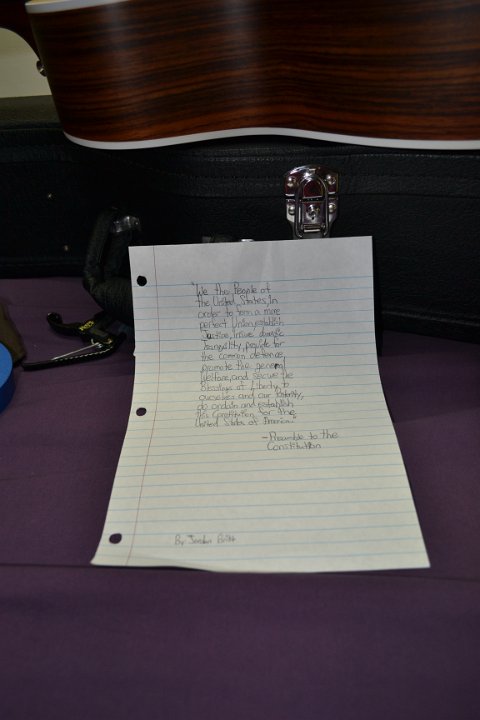 "We the People of
the United States, in
order to form a more
perfect union, establish
Justice, insure domestic
tranquility, provide for
the common defence,
promote the general
Welfare, and secure the
Blessings of Liberty to
ourselves and our Posterity,
do ordain and establish
this Constitution for the
United States of America.
-Preamble to the
Constitution
By: Jordan Britt